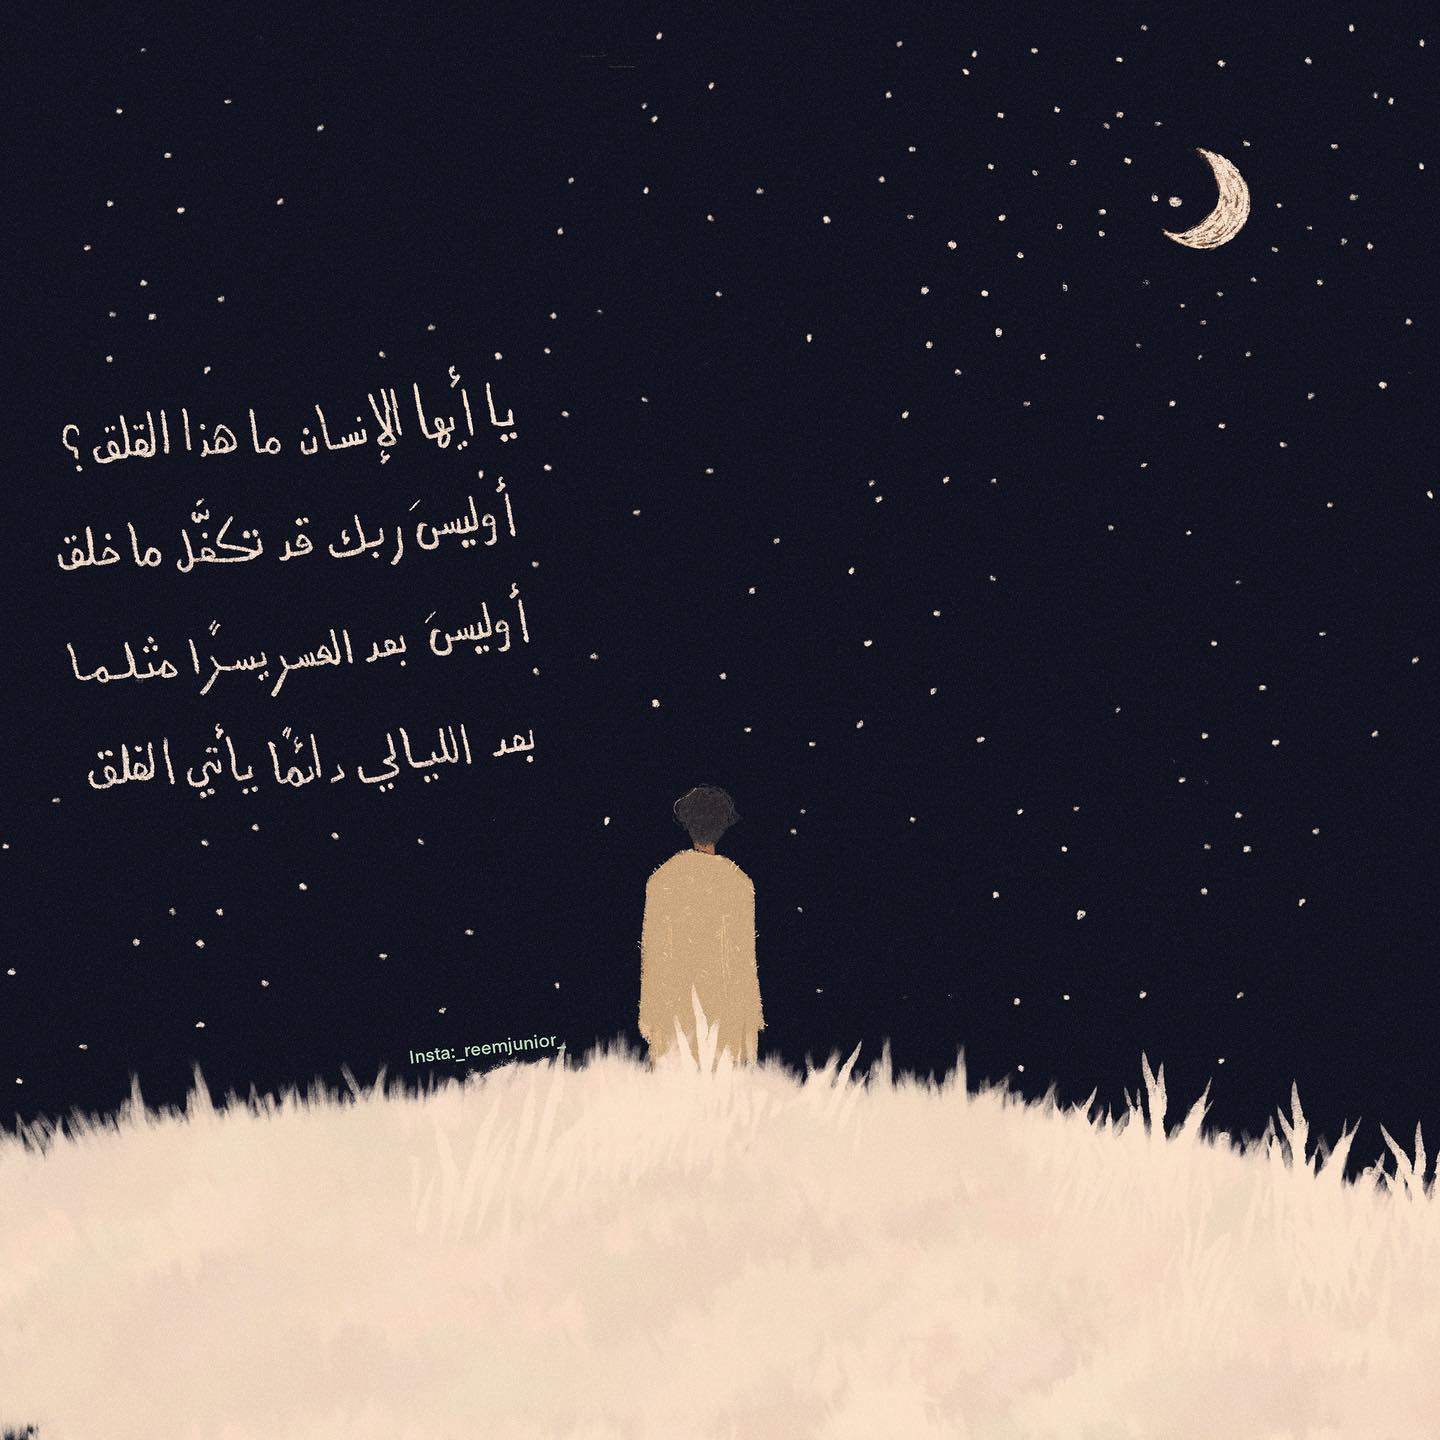 يا أيها الإنسان ما هذا القلق؟
أوليسَ ربك قد تكفَّل ما خلق
أوليسَ بعد العسر يسرًا مثلما
بعد الليالي دائمًا يأتي الفلق
Insta:_reemjunior_